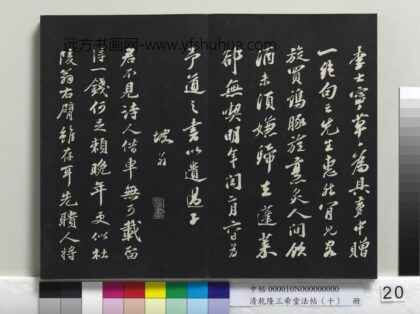 远方书画网-www.yfshuhua.com
李士寧萃
為具夢中贈
一絶句云先生惠然肯見客
旋買鷄豚旋烹炙人間飲
酒未須嫌歸去蓬萊
却無喫明年閏月六日為
予道之書以遺過子
坡翁
君不見詩人借車無可載留
得一錢何足賴晚年更似杜
陵翁右臂雖存耳先聵人將
中帖 000010N000000000
清乾隆三希堂法帖(十) 冊
20